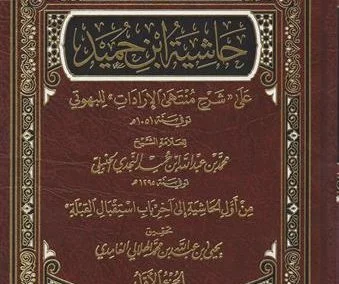 حاشية ابن حميد
على "شرح منتهى الإرادات" للبهوتي
توفي سنة ١٠٥١هـ
للعلامة الشيخ
محمد بن عبد الله ابن حميد النجدي الحنبلي
توفي سنة ١٢٩٥هـ
من أول الحاشية إلى آخر باب استقبال القبلة
تحقيق
يحيى بن عبد الله بن محمد الهلالي الغامدي
الجزء الأول